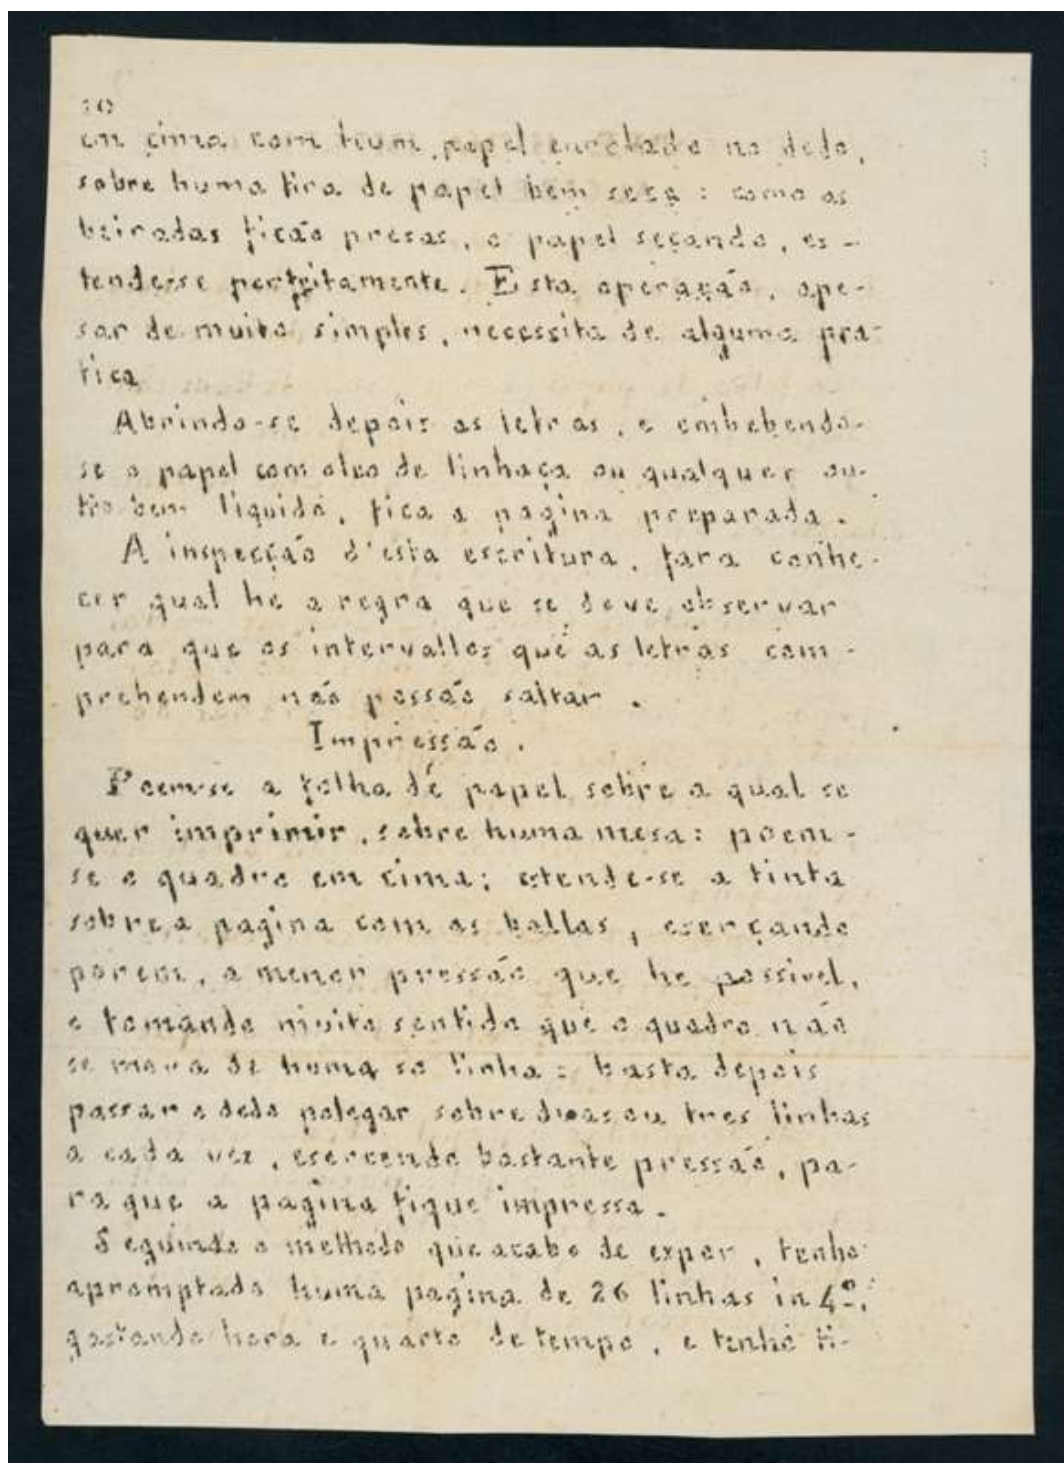 10
em çima com hum papel enrolado no dedo,
sobre huma tira de papel bem seca : como as
beiradas ficão presas, o papel seçando, es-
tender-se perfeitamente. Esta operação, ape-
sar de muito simples, necessita de alguma pra-
tica
Abrindo-se depois as letras, e embebendo-
se o papel com oleo de linhaça ou qualquer ou-
tro bem liquido, fica a pagina preparada.
A inspecção d'esta escritura, fara conhe-
cer qual he a regra que se deve observar
para que os intervallos que as letras com-
prehendem não possão saltar.
Impressão.
Poem-se a folha de papel sobre a qual se
quer imprimir, sobre huma mesa: poem-
se o quadro em cima; estende-se a tinta
sobre a pagina com as ballas, eserçando
porem, a menor pressão que he possivel,
e tomando muito sentido que o quadro não
se mova de huma so linha: basta depois
passar o dedo polegar sobre duas ou tres linhas
a cada vez, esercendo bastante pressão, pa-
ra que a pagina fique impressa.
Seguindo o methodo que acabo de expor, tenho
apromptado huma pagina de 26 linhas in 4º,
gastando hora e quarto de tempo, e tenho ti-